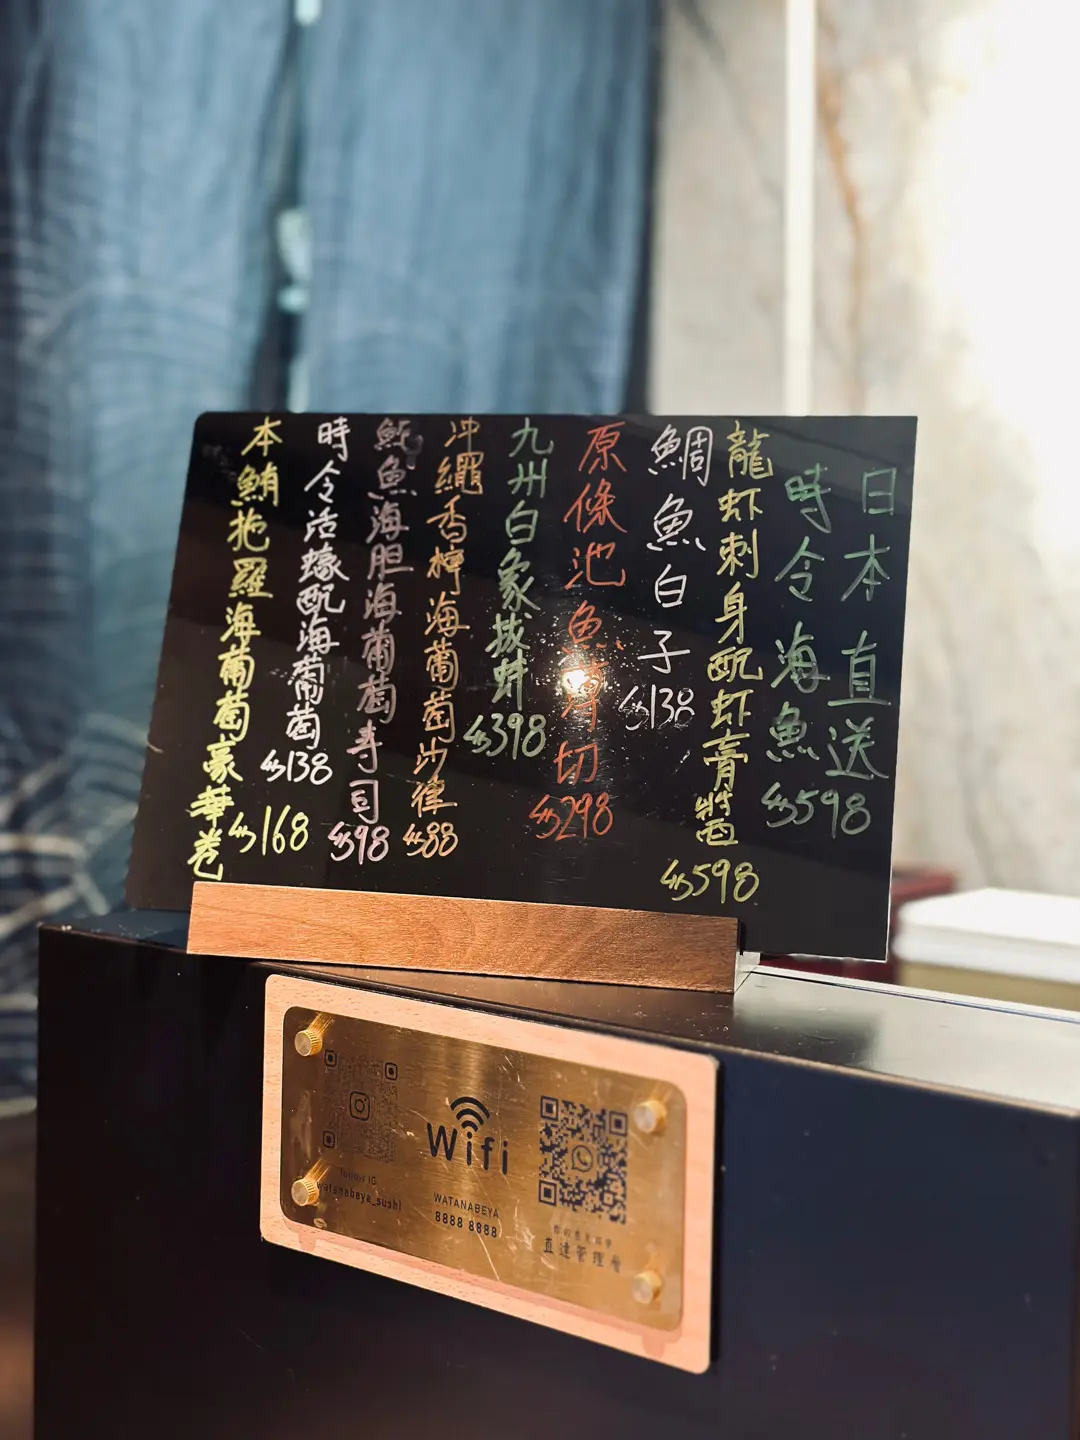 日本直送
時令海魚 $598
龍虾刺身配虾膏醬 $598
鯛魚白子 $138
原條池魚薄切 $298
九州白象拔蚌 $398
沖繩香檸海葡萄沙律 $88
魚海胆海葡萄寿司 $98
時令活蠔配海葡萄 $138
本鮪拖羅海葡萄豪華卷 $168
follow IG
watanabeya_sushi
Wifi
WATANABEYA
8888 8888
直達管理層